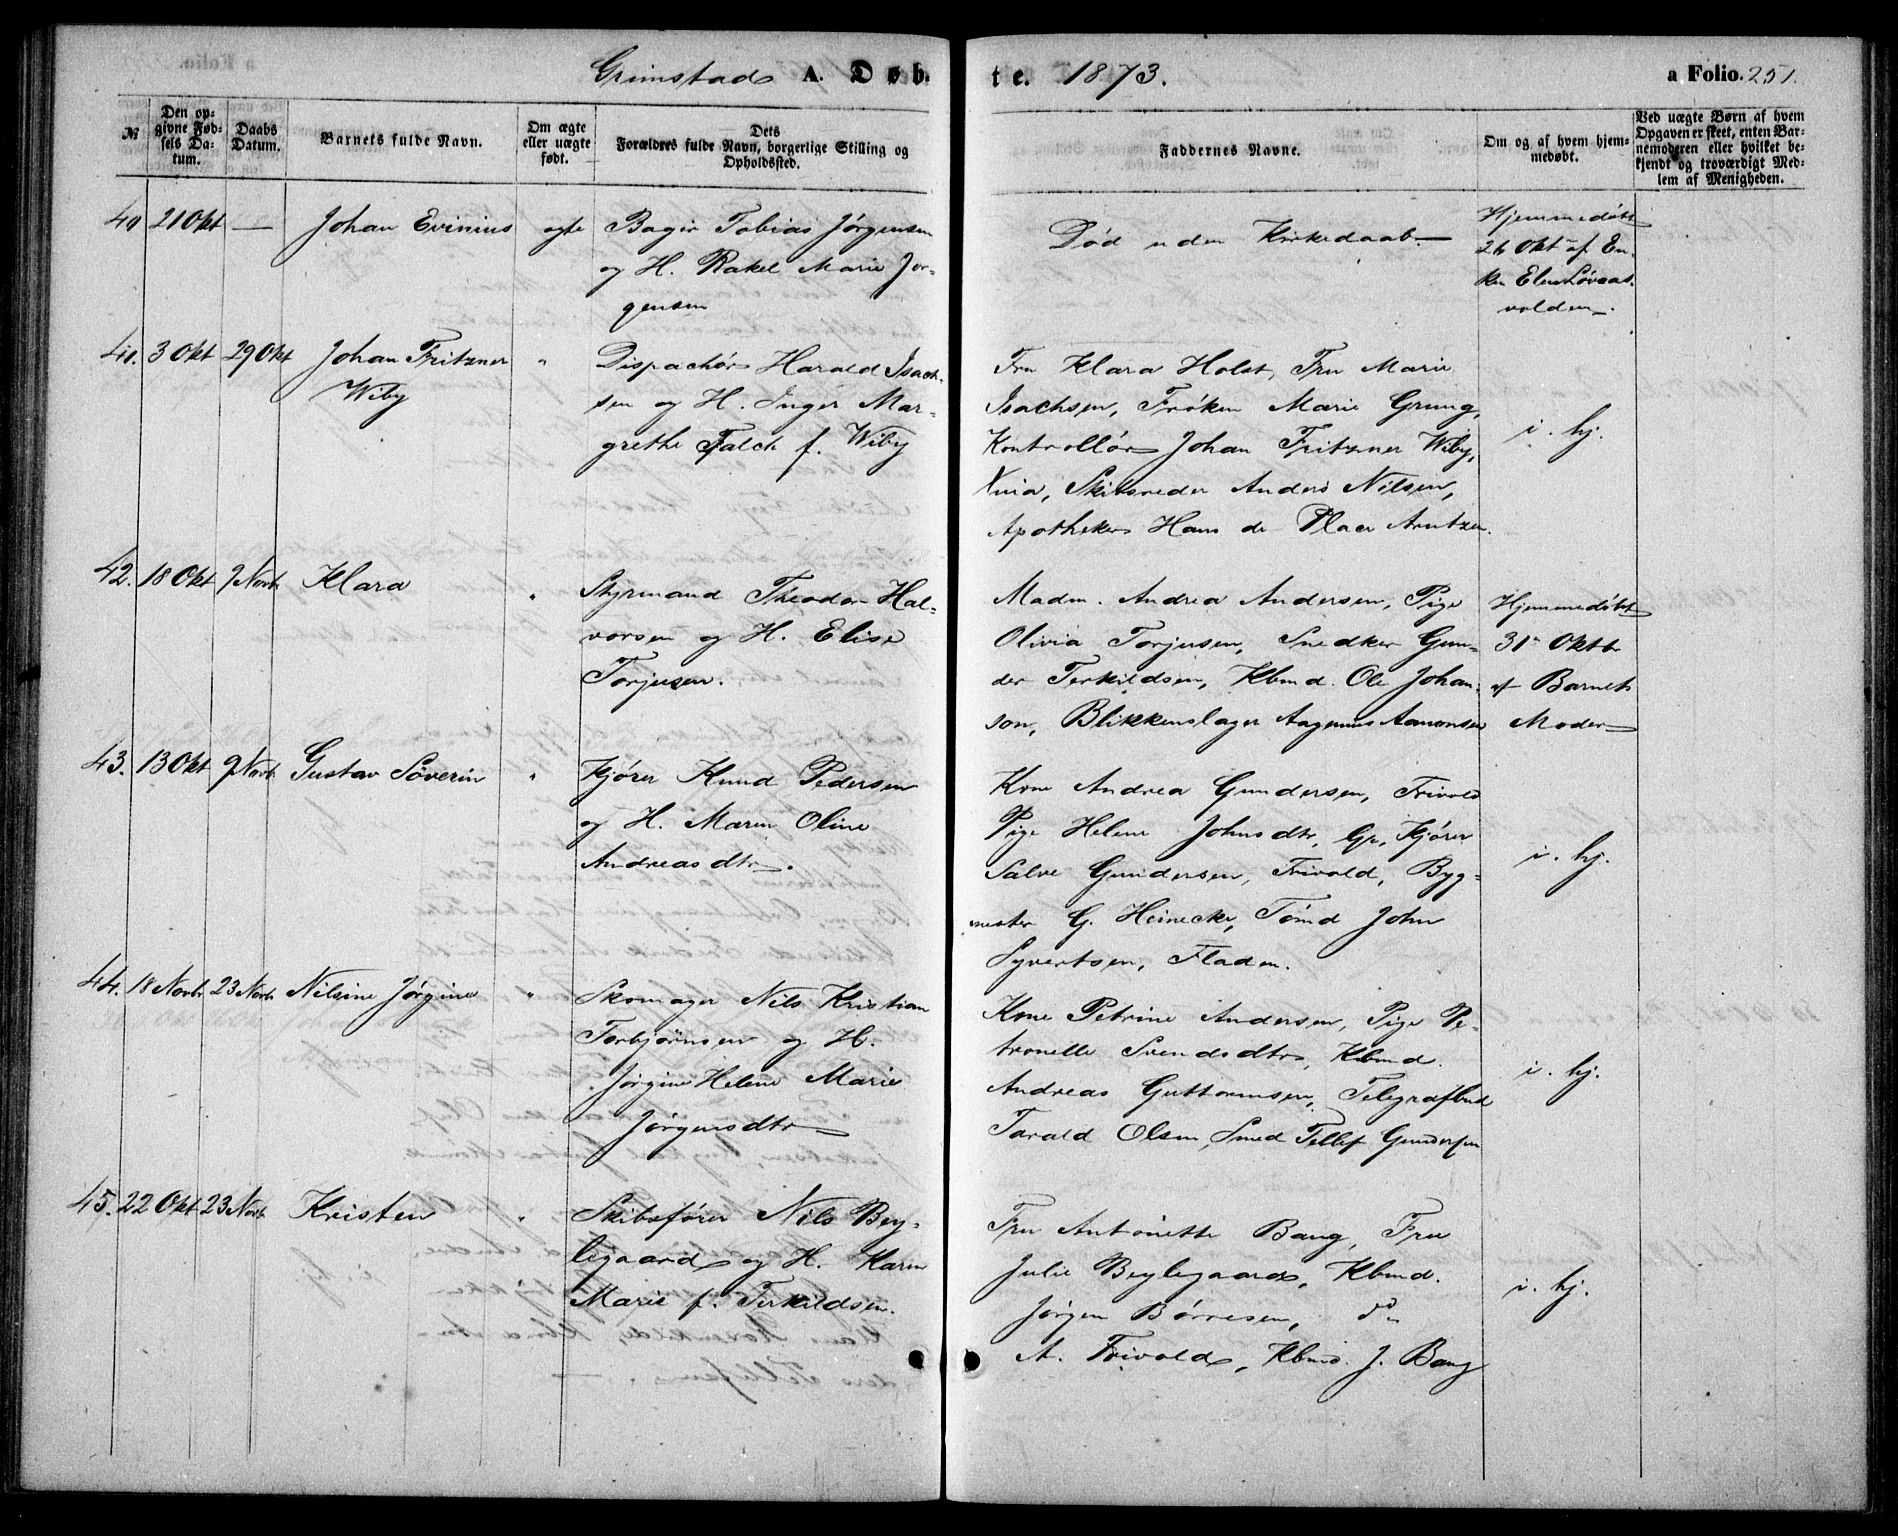 Grimstad A. Døb-
te. 1873.
a Folio. 251.
№
Den op-
givne Fød-
sels Da-
tum.
Daabs
Datum.
Barnets fulde Navn.
Om ægte
eller uægte
født.
Dets
Forældres fulde Navn, borgerlige Stilling og
Opholdssted.
Faddernes Navne.
Om og af hvem hjem-
medøbt.
Ved uægte Børn af hvem
Opgaven er skeet, enten Bar-
nemoderen eller hvilket be-
kjendt og troværdigt Med-
lem af Menigheden.
40 21 Okt — Johan Evinius ægte
Bager Tobias Jørgensen
og H. Rakel Marie Jør-
gensen
Død uden Kirkedaab.
Hjemmedøbt
26 Okt af En-
ken Elen
volden.
41. 3 Okt 29 Okt Johan Fritzner
Wiby
"
Dispachør Harald Isach-
sen og H. Inger Mar-
grethe Falch f. Wiby
Fru Klara Holst, Fru Marie
Isachsen, Frøken Marie Grung,
Kontrollør Johan Fritzner Wiby,
Skibsreder Anders Nilsen,
Apotheker Hans de Place Arntzen.
i. hj.
42. 18 Okt 9 Novb Klara "
Styrmand Theodor Hal-
vorsen og H. Elise
Torjusen.
Madm. Andrea Andersen, Pige
Olivia Torjusen, Snedker Gun-
der Terkildsen, Kbmd. Ole Johan-
son, Blikkenslager Aagenus Aanonsen
Hjemmedøbt
31 Oktbr
af Barnets
Moder
43. 13 Okt 9 Novb. Gustav Søverin "
Kjører Knud Pedersen
og H. Maren Oline
Andreasdtr.
Kone Andrea Gundersen, Frivold
Pige Helene Johnsdtr, Gp, Kjører
Salve Gundersen, Frivold, Byg-
mester G. Heinecke, Tømd John
Syvertsen, Fladen.
i. hj.
44. 18 Novbr 23 Novb. Nilsine Jørgine "
Skomager Nils Kristian
Torbjørnsen og H.
Jørgine Helene Marie
Jørgensdtr
Kone Petrine Andersen, Pige Pe-
tronelle Svendsdtr, Kbmd.
Andreas Guttormsen, Telegrafbud
Tarald Olsen, Smed Tellef Gundersen
i. hj.
45. 22 Okt 23 Novb. Kristen "
Skibsfører Nils Bey-
legaard og H. Karen
Marie f. Terkildsen.
Fru Antonette Bang, Fru
Julie Beylegaard, Kbmd.
Jørgen Børresen, do
A. Frivold, Kbmd. J. Bang
i. hj.